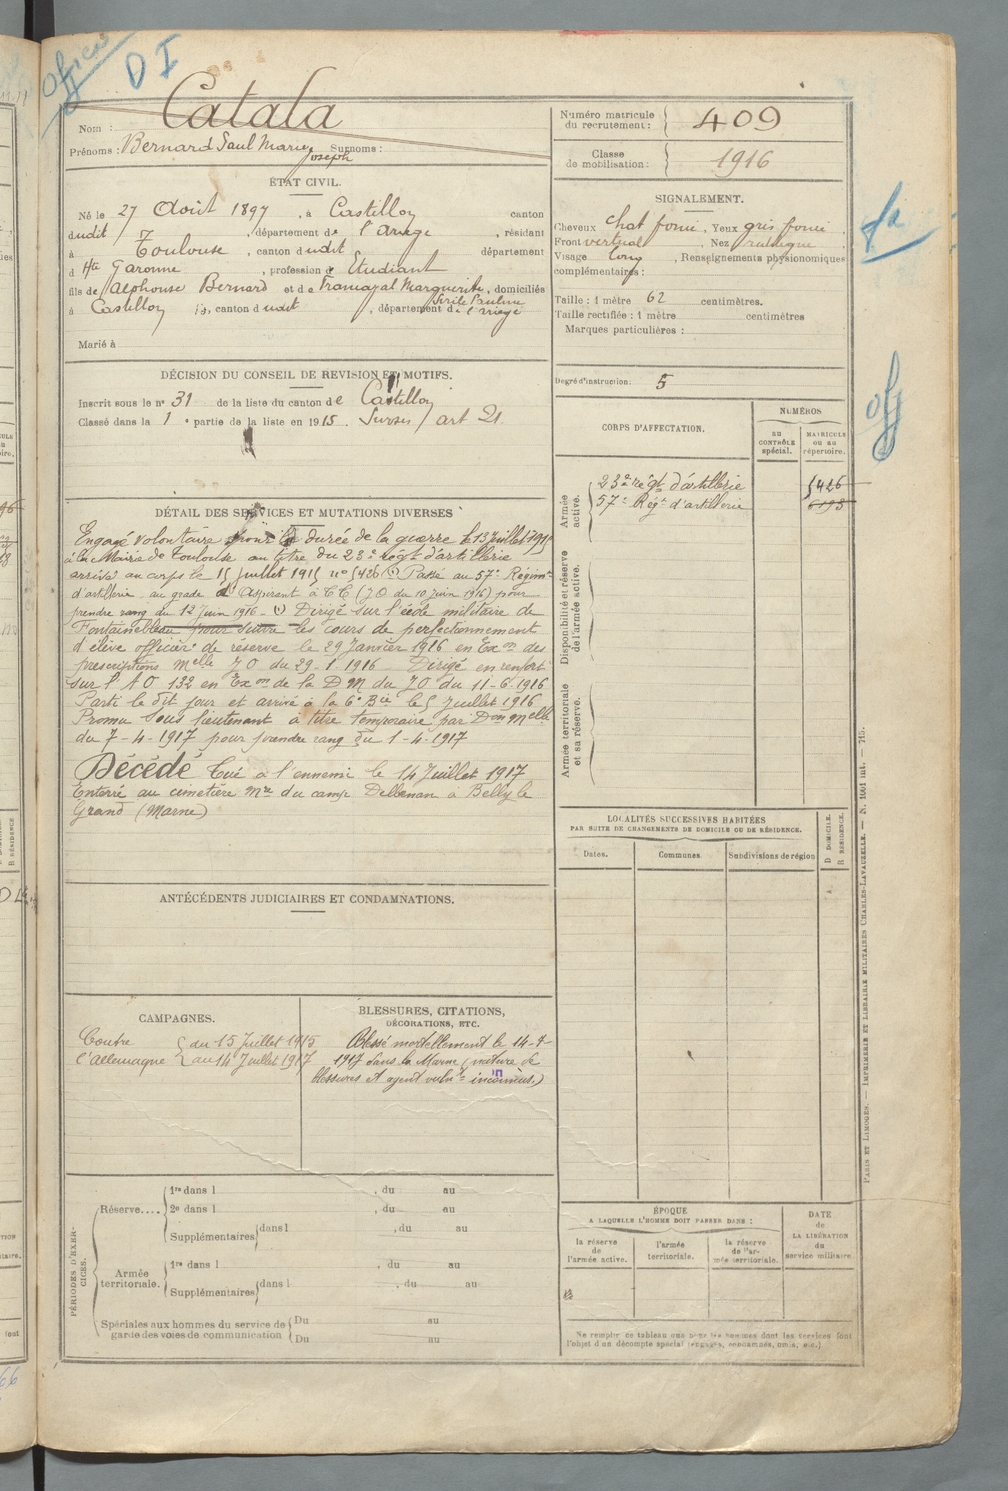 Officier
D I
Nom : Catala
Prénoms : Bernard Paul Marie Joseph Surnoms :
Numéro matricule du recrutement : 409
Classe de mobilisation : 1916
ÉTAT CIVIL.
Né le 27 Août 1897, à Castillon canton
dudit, département de l'Ariege, résidant
à Toulouse, canton dudit département
d Hte Garonne, profession d Etudiant
fils de Alphonse Bernard et de Marguerite, domiciliés
à Castillon, canton dudit, département de l'Ariège
Marié à
SIGNALEMENT.
Cheveux chat foncé, Yeux gris foncé,
Front vertical, Nez rectiligne
Visage long, Renseignements physionomiques
complémentaires :
Taille : 1 mètre 62 centimètres.
Taille rectifiée : 1 mètre centimètres
Marques particulières :
Degré d'instruction. 5
DÉCISION DU CONSEIL DE REVISION ET MOTIFS.
Inscrit sous le no 31 de la liste du canton de Castillon
Classé dans la 1e partie de la liste en 1915. art 21.
CORPS D'AFFECTATION.
NUMÉROS
au CONTRÔLE spécial.
MATRICULE ou au répertoire.
Armée active.
23e régt d'artillerie 5426
57e Régt d'artillerie
Disponibilité et réserve de l'armée active.
Armée territoriale et sa réserve.
DÉTAIL DES SERVICES ET MUTATIONS DIVERSES
Engagé volontaire pour la durée de la guerre le 13 juillet 1915
à la Mairie de Toulouse au titre du 23e régt d'artillerie
arrivé au corps le 15 juillet 1915 no 5426 Passé au 57e Régiment
d'artillerie, au grade d'Aspirant à TT (JO du 10 juin 1916) pour
prendre rang du 12 juin 1916 - Dirigé sur l'école militaire de
Fontainebleau pour suivre les cours de perfectionnement
d'élève officier de réserve le 29 Janvier 1916 en Exon des
prescriptions Melle JO du 29-1-1916 Dirigé en renfort
sur l'AO 132 en Exon de la DM du JO du 11-6-1916
Parti le dit jour et arrivé à la 6e Bie le 5 Juillet 1916
Promu Sous lieutenant à titre temporaire par Don Melle
du 7-4-1917 pour prendre rang du 1-4-1917
Décédé Tué à l'ennemi le 14 Juillet 1917
Enterré au cimetière Mre du camp à le
Grand (Marne)
ANTÉCÉDENTS JUDICIAIRES ET CONDAMNATIONS.
LOCALITÉS SUCCESSIVES HABITÉES
PAR SUITE DE CHANGEMENTS DE DOMICILE OU DE RÉSIDENCE.
Dates.
Communes.
Subdivisions de région
D DOMICILE.
R RÉSIDENCE.
CAMPAGNES.
Contre l'Allemagne { du 15 Juillet 1915
au 14 Juillet 1917
BLESSURES, CITATIONS,
DÉCORATIONS, ETC.
Blessé mortellement le 14-7-
1917 dans la Marne (nature de
blessures et agent vulnt inconnus.)
PÉRIODES D'EXERCICES.
Réserve.... 1re dans l , du au
2e dans l , du au
Supplémentaires dans l , du au
Armée territoriale. 1re dans l , du au
Supplémentaires dans l , du au
Spéciales aux hommes du service de garde des voies de communication Du au
Du au
ÉPOQUE
A LAQUELLE L'HOMME DOIT PASSER DANS :
la réserve de l'armée active.
l'armée territoriale.
la réserve de l'armée territoriale.
DATE
de
LA LIBÉRATION
du
service militaire.
Ne remplir ce tableau que pour les hommes dont les services font
l'objet d'un décompte spécial (engagés, condamnés, omis, etc.)
PARIS ET LIMOGES. — IMPRIMERIE ET LIBRAIRIE MILITAIRES CHARLES-LAVAUZELLE. — N. 1001 int. — 715.